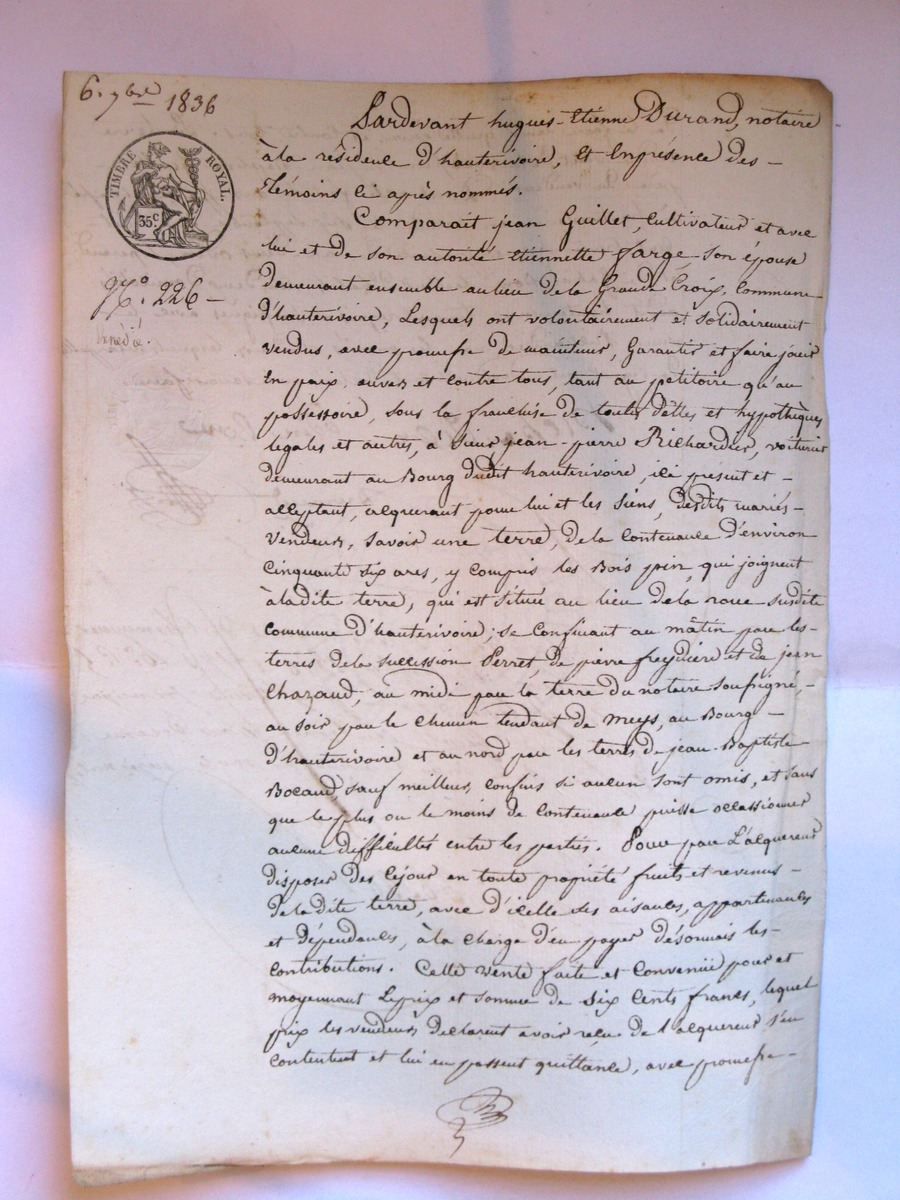 6. 7bre 1836
TIMBRE ROYAL.
35c
No. 226 –
Pardevant hugues-Etienne Durand, notaire
à la résidence d'hauterivoire, et en présence des –
témoins ci après nommés.
Comparait jean Guillet, cultivateur et avec
lui et de son autorité Etiennette farge son épouse
demeurant ensemble au lieu de la Grande Croix, Commune
d'hauterivoire, Lesquels ont volontairement et solidairement
vendus, avec promesse de maintenir, garantir et faire jouir
en paix, envers et contre tous, tant au pétitoire qu'au
possessoire, sous la franchise de toutes dettes et hypothèques
légales et autres, à sieur jean-pierre Richardier, voiturier
demeurant au Bourg dudit hauterivoire, ici présent et –
acceptant, acquerant pour lui et les siens, desdits mariés –
vendeurs, savoir une terre, de la contenance d'environ
cinquante six ares, y compris les Bois pin, qui joignent
à ladite terre, qui est située au lieu de la roue susdite
commune d'hauterivoire; se confinant au mâtin par les –
terres de la succession Perret, de pierre freydiere et de jean
Chazaud, au midi par la terre du notaire soussigné, –
au soir par le chemin tendant de meys, au Bourg –
d'hauterivoire et au nord par les terres de jean-Baptiste
Bocaud sauf meilleurs confins si aucun sont omis, et sans
que le plus ou le moins de contenance puisse occassionner
aucune difficultés entre les parties. Pour par L'acquereur
disposer dès cejour en toute propriété fruits et revenus –
de ladite terre, avec d'icelle ses aisances, appartenances
et dépendances, à la charge d'en payer désormais les –
contributions. Cette vente faite et convenüe pour et
moyennant Leprix et somme de six cents francs, lequel
prix les vendeurs declarent avoir reçu de l'acquereur s'en
contentent et lui en passent quittance, avec promesse –